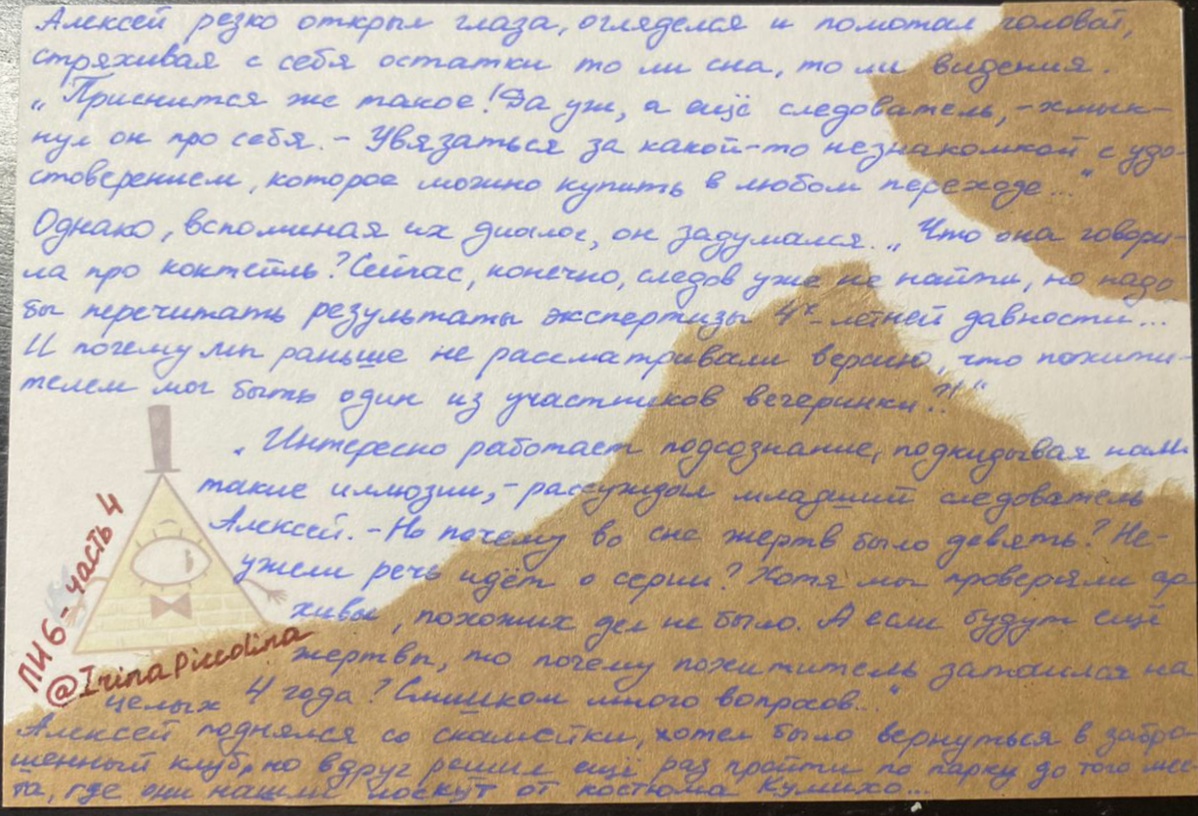 Алексей резко открыл глаза, огляделся и помотал головой,
стряхивая с себя остатки то ли сна, то ли видения.
„Приснится же такое! Да уж, а ещё следователь, - хмык-
нул он про себя. - Увязаться за какой-то незнакомкой с удо-
стоверением, которое можно купить в любом переходе..."
Однако, вспоминая их диалог, он задумался. „Что она говори-
ла про коктейль? Сейчас, конечно, следов уже не найти, но надо
бы перечитать результаты экспертизы 4х-летней давности...
И почему мы раньше не рассматривали версию, что похити-
телем мог быть один из участников вечеринки?!"
„Интересно работает подсознание, подкидывая нам
такие иллюзии, - рассуждал младший следователь
Алексей. - Но почему во сне жертв было девять? Не-
ужели речь идёт о серии? Хотя мы проверяли ар-
хивы, похожих дел не было. А если будут ещё
жертвы, то почему похититель затаился на
целых 4 года? Слишком много вопросов..."
Алексей поднялся со скамейки, хотел было вернуться в забро-
шенный клуб, но вдруг решил ещё раз пройти по парку до того мес-
та, где они нашли лоскут от костюма Кумихо...
ПИ6 - часть 4
@IrinaPiccolina